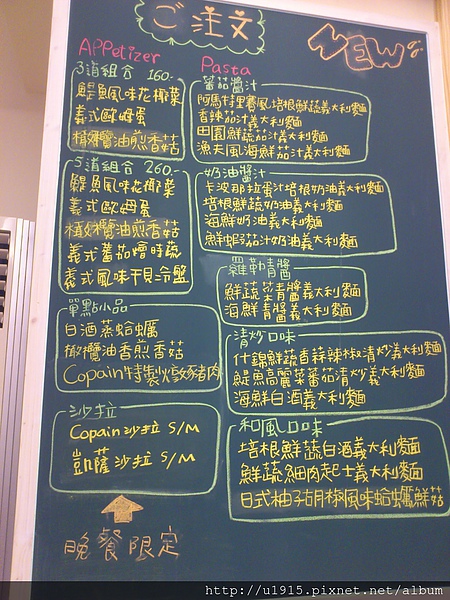 ご注文
NEW
APPetizer
3道組合 160-
鯷魚風味花椰菜
義式歐姆蛋
橄欖油煎香菇
5道組合 260-
鯷魚風味花椰菜
義式歐姆蛋
橄欖油煎香菇
義式蕃茄燴時蔬
義式風味干貝冷盤
單點小品
白酒蒸蛤蠣
橄欖油香煎香菇
Copain特製火燉豬肉
沙拉
Copain沙拉 S/M
凱薩沙拉 S/M
晚餐限定
Pasta
蕃茄醬汁
阿馬特里賽風培根鮮蔬義大利麵
香辣茄汁義大利麵
田園鮮蔬茄汁義大利麵
漁夫風海鮮茄汁義大利麵
奶油醬汁
卡波那拉蛋汁培根奶油義大利麵
培根鮮蔬奶油義大利麵
海鮮奶油義大利麵
鮮蝦茄汁奶油義大利麵
羅勒青醬
鮮蔬菜青醬義大利麵
海鮮青醬義大利麵
清炒口味
什錦鮮蔬香蒜辣椒清炒義大利麵
鯷魚高麗菜蕃茄清炒義大利麵
海鮮白酒義大利麵
和風口味
培根鮮蔬白酒義大利麵
鮮蔬細肉起士義大利麵
日式柚子胡椒風味蛤蠣鮮菇
http://u1915.pixnet.net/album